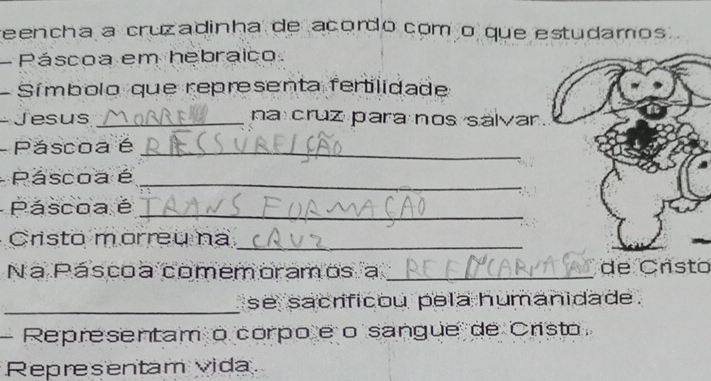 reencha a cruzadinha de acordo com o que estudamos.
- Páscoa em hebraico.
- Símbolo que representa fertilidade
- Jesus MORREU na cruz para nos salvar.
- Páscoa é RESSUREIÇÃO
- Páscoa é
- Páscoa é TRANSFORMAÇÃO
Cristo morreu na CRUZ
Na Páscoa comemoramos a REENCARNAÇÃO de Cristo
se sacrificou pela humanidade.
- Representam o corpo e o sangue de Cristo.
Representam vida.